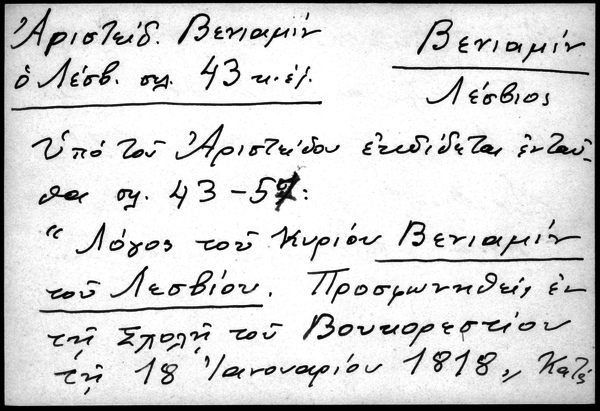 Ἀριστείδ. Βενιαμίν
ὁ Λέσβ. σελ. 43 κ.ἑξ.
Βενιαμίν
Λέσβιος
Ὑπό τοῦ Ἀριστείδου ἐκδίδεται ἐνταῦ-
θα σελ. 43-57:
“Λόγος τοῦ Κυρίου Βενιαμίν
τοῦ Λεσβίου. Προσφωνηθείς ἐν
τῇ Σχολῇ τοῦ Βουκορεστίου
τῇ 18 Ἰανουαρίου 1818„ Κατά